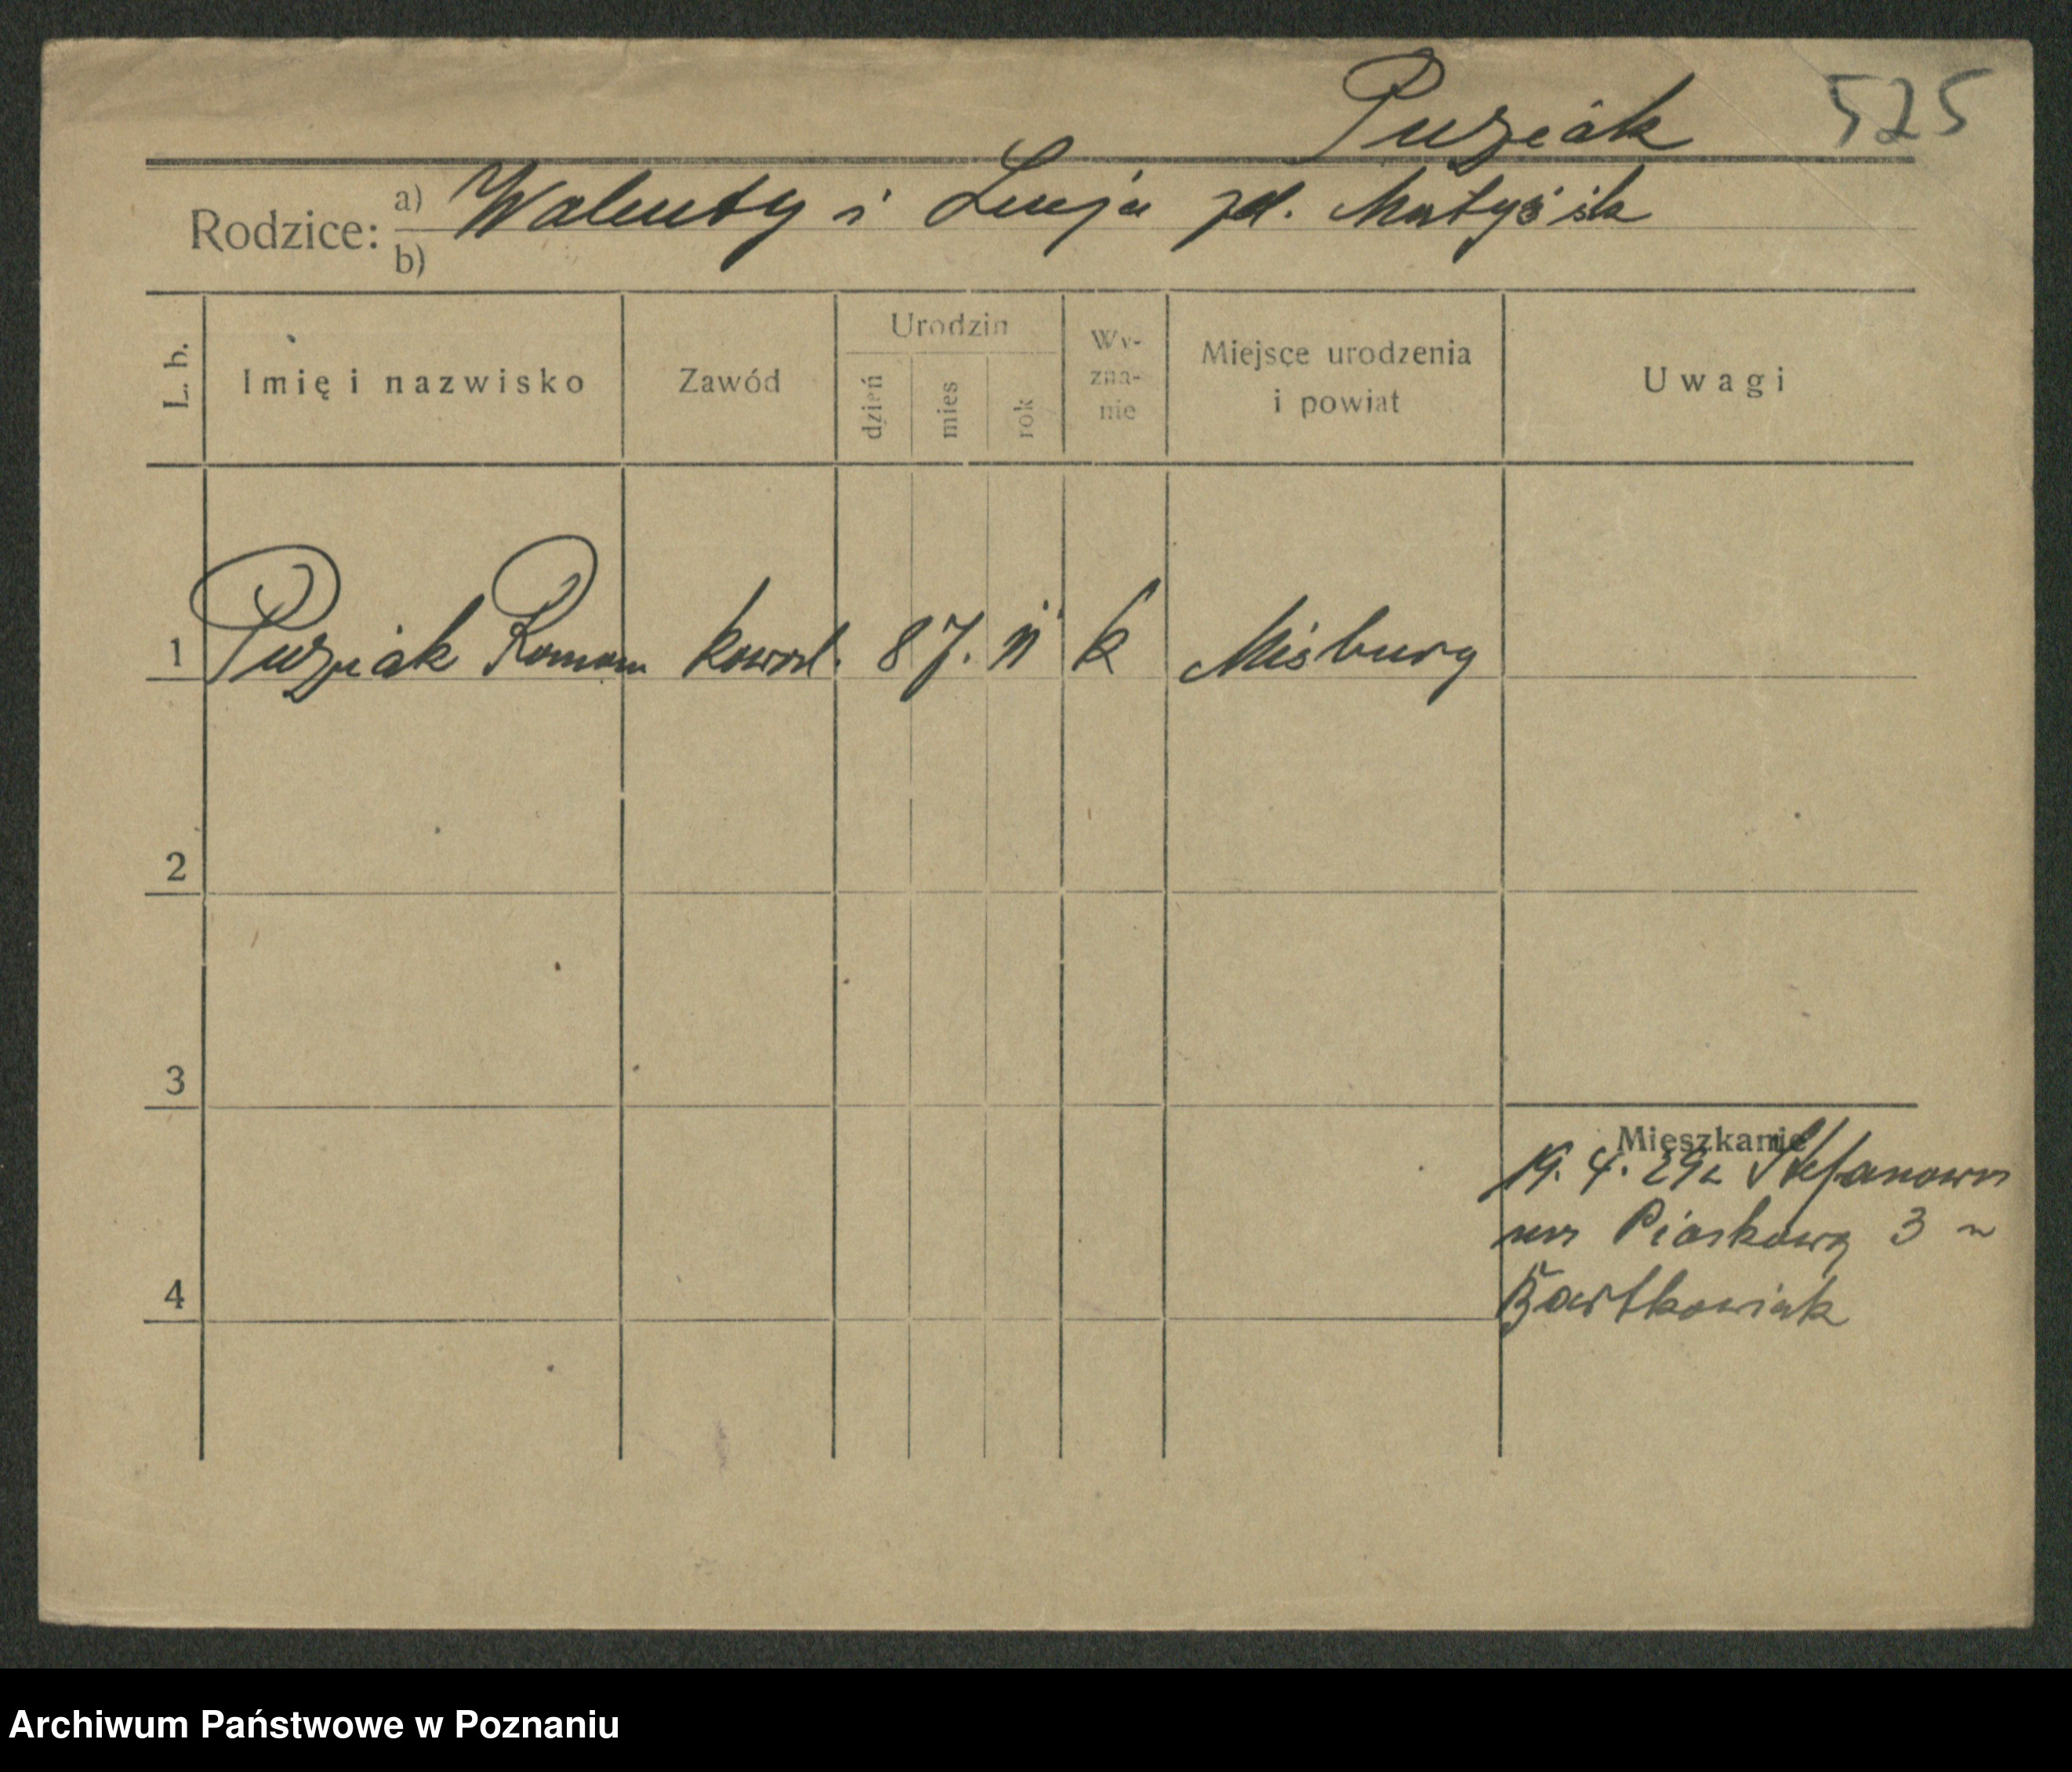 Puziak 525
Rodzice: a) Walenty i Lucja zd. Matysiak
b)
L. b. Imię i nazwisko Zawód Urodzin dzień mies rok Wy-zna-nie Miejsce urodzenia i powiat Uwagi
1 Puziak Roman kowal. 8 7. 11 k Misburg
2
3
Mieszkanie
19. 4. 29 z Stefanowa
na Piaskową 3
4 Bartkowiak
Archiwum Państwowe w Poznaniu